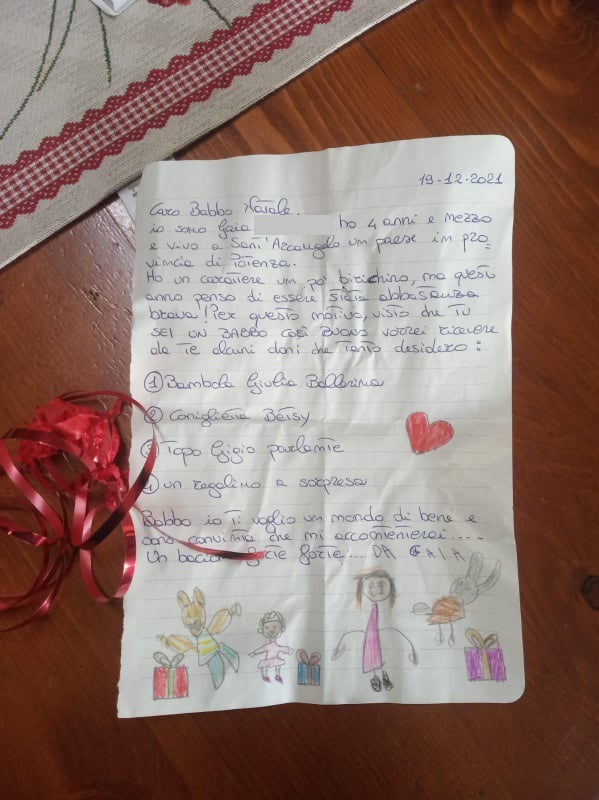 19-12-2021
Caro Babbo Natale.
io sono Gaia ho 4 anni e mezzo
e vivo a Sant'Arcangelo un paese in pro-
vincia di Potenza.
Ho un carattere un po' birichino, ma questo
anno penso di essere stata abbastanza
brava! Per questo motivo, visto che TU
SEI UN BABBO COSÌ BUONO vorrei ricevere
da te alcuni doni che tanto desidero:
1 Bambola Giulia Ballerina
2 Coniglietta Betsy
3 Topo Gigio parlante
4 un regalino a sorpresa
Babbo io ti voglio un mondo di bene e
sono convinta che mi accontenterai....
Un bacio forte forte... DA GAIA